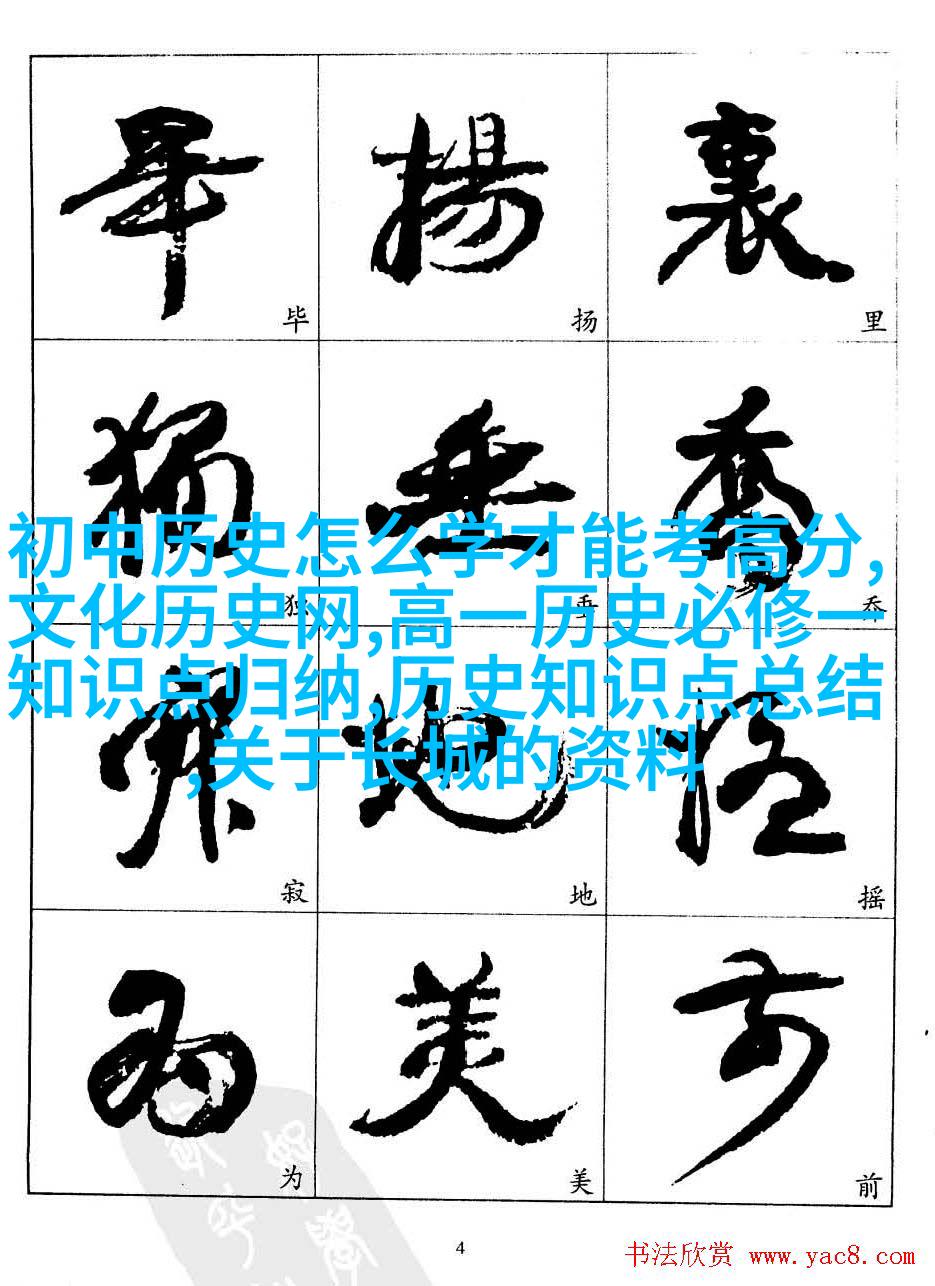 畢 揚 裏
毕 扬 里
獨 垂 喬
独 垂 乔
初中历史怎么学才能考高分,
文化历史网,高一历史必修一
知识点归纳,历史知识点总结
,关于长城的资料
寂 地 摇
寂 地 摇
为 美 前
为 美 前
4
书法欣赏 www.yac8.com